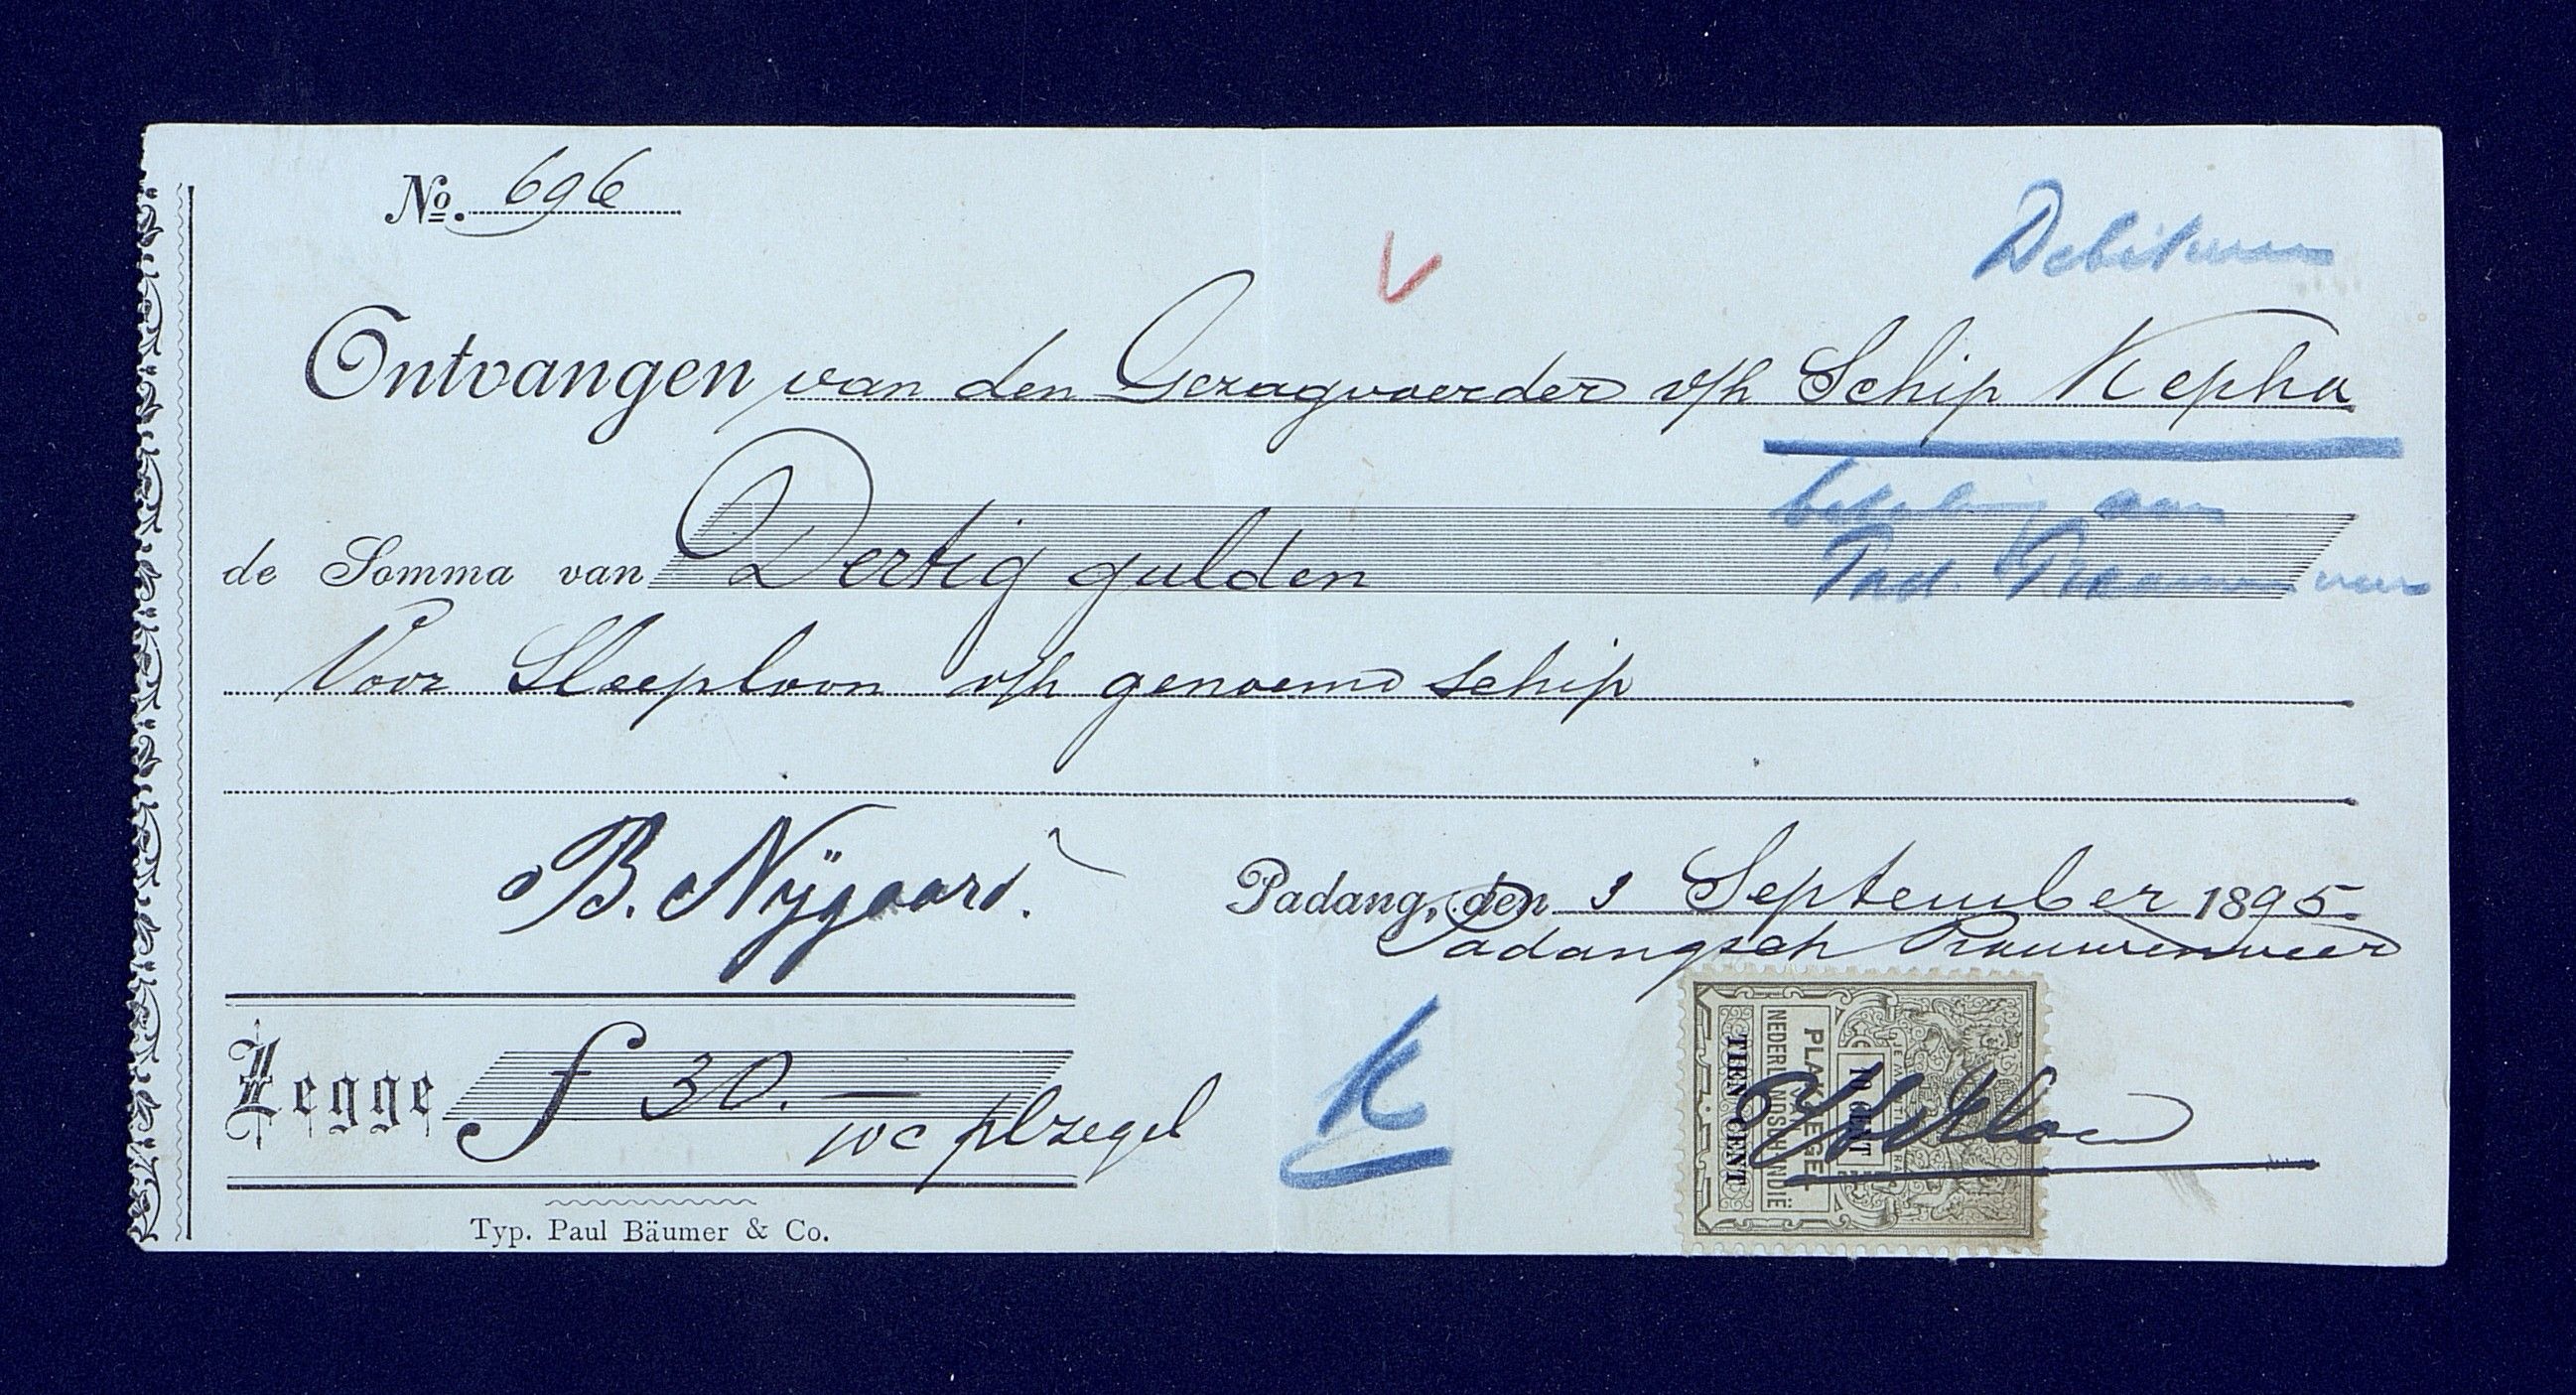 No. 696
Debiteuren
Ontvangen van den Gezagvoerder v/h Schip Kepha
betaling aan
de Somma van Dertig gulden
Pad.
Voor Sleeploon v/h genoemd schip
B. Nÿgaard.
Padang, den 3 September 1895.
Padangsch Prauwenveer
Legge f 30.—
10 c plzegel
K
PLAKZEGEL
NEDERLANDSCH-INDIË
10 CENT
TIEN CENT
Typ. Paul Bäumer & Co.